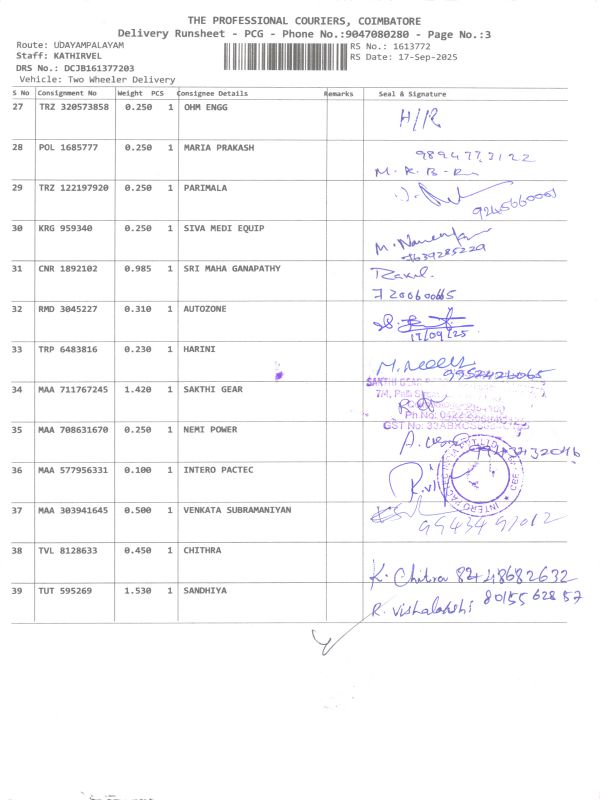 THE PROFESSIONAL COURIERS, COIMBATORE
Delivery Runsheet - PCG - Phone No.:9047080280 - Page No.:3
Route: UDAYAMPALAYAM
RS No.: 1613772
Staff: KATHIRVEL
RS Date: 17-Sep-2025
DRS No.: DCJB161377203
Vehicle: Two Wheeler Delivery
S No Consignment No Weight PCS Consignee Details Remarks Seal & Signature
27 TRZ 320573858 0.250 1 OHM ENGG H/R
28 POL 1685777 0.250 1 MARIA PRAKASH
M. R. B-R
29 TRZ 122197920 0.250 1 PARIMALA
30 KRG 959340 0.250 1 SIVA MEDI EQUIP
31 CNR 1892102 0.985 1 SRI MAHA GANAPATHY
32 RMD 3045227 0.310 1 AUTOZONE
17/09/25
33 TRP 6483816 0.230 1 HARINI
34 MAA 711767245 1.420 1 SAKTHI GEAR
SAKTHI GEAR
35 MAA 708631670 0.250 1 NEMI POWER
36 MAA 577956331 0.100 1 INTERO PACTEC
INTERO
37 MAA 303941645 0.500 1 VENKATA SUBRAMANIYAN
38 TVL 8128633 0.450 1 CHITHRA
K. Chitra
39 TUT 595269 1.530 1 SANDHIYA
R. Vishalakshi 8015562857